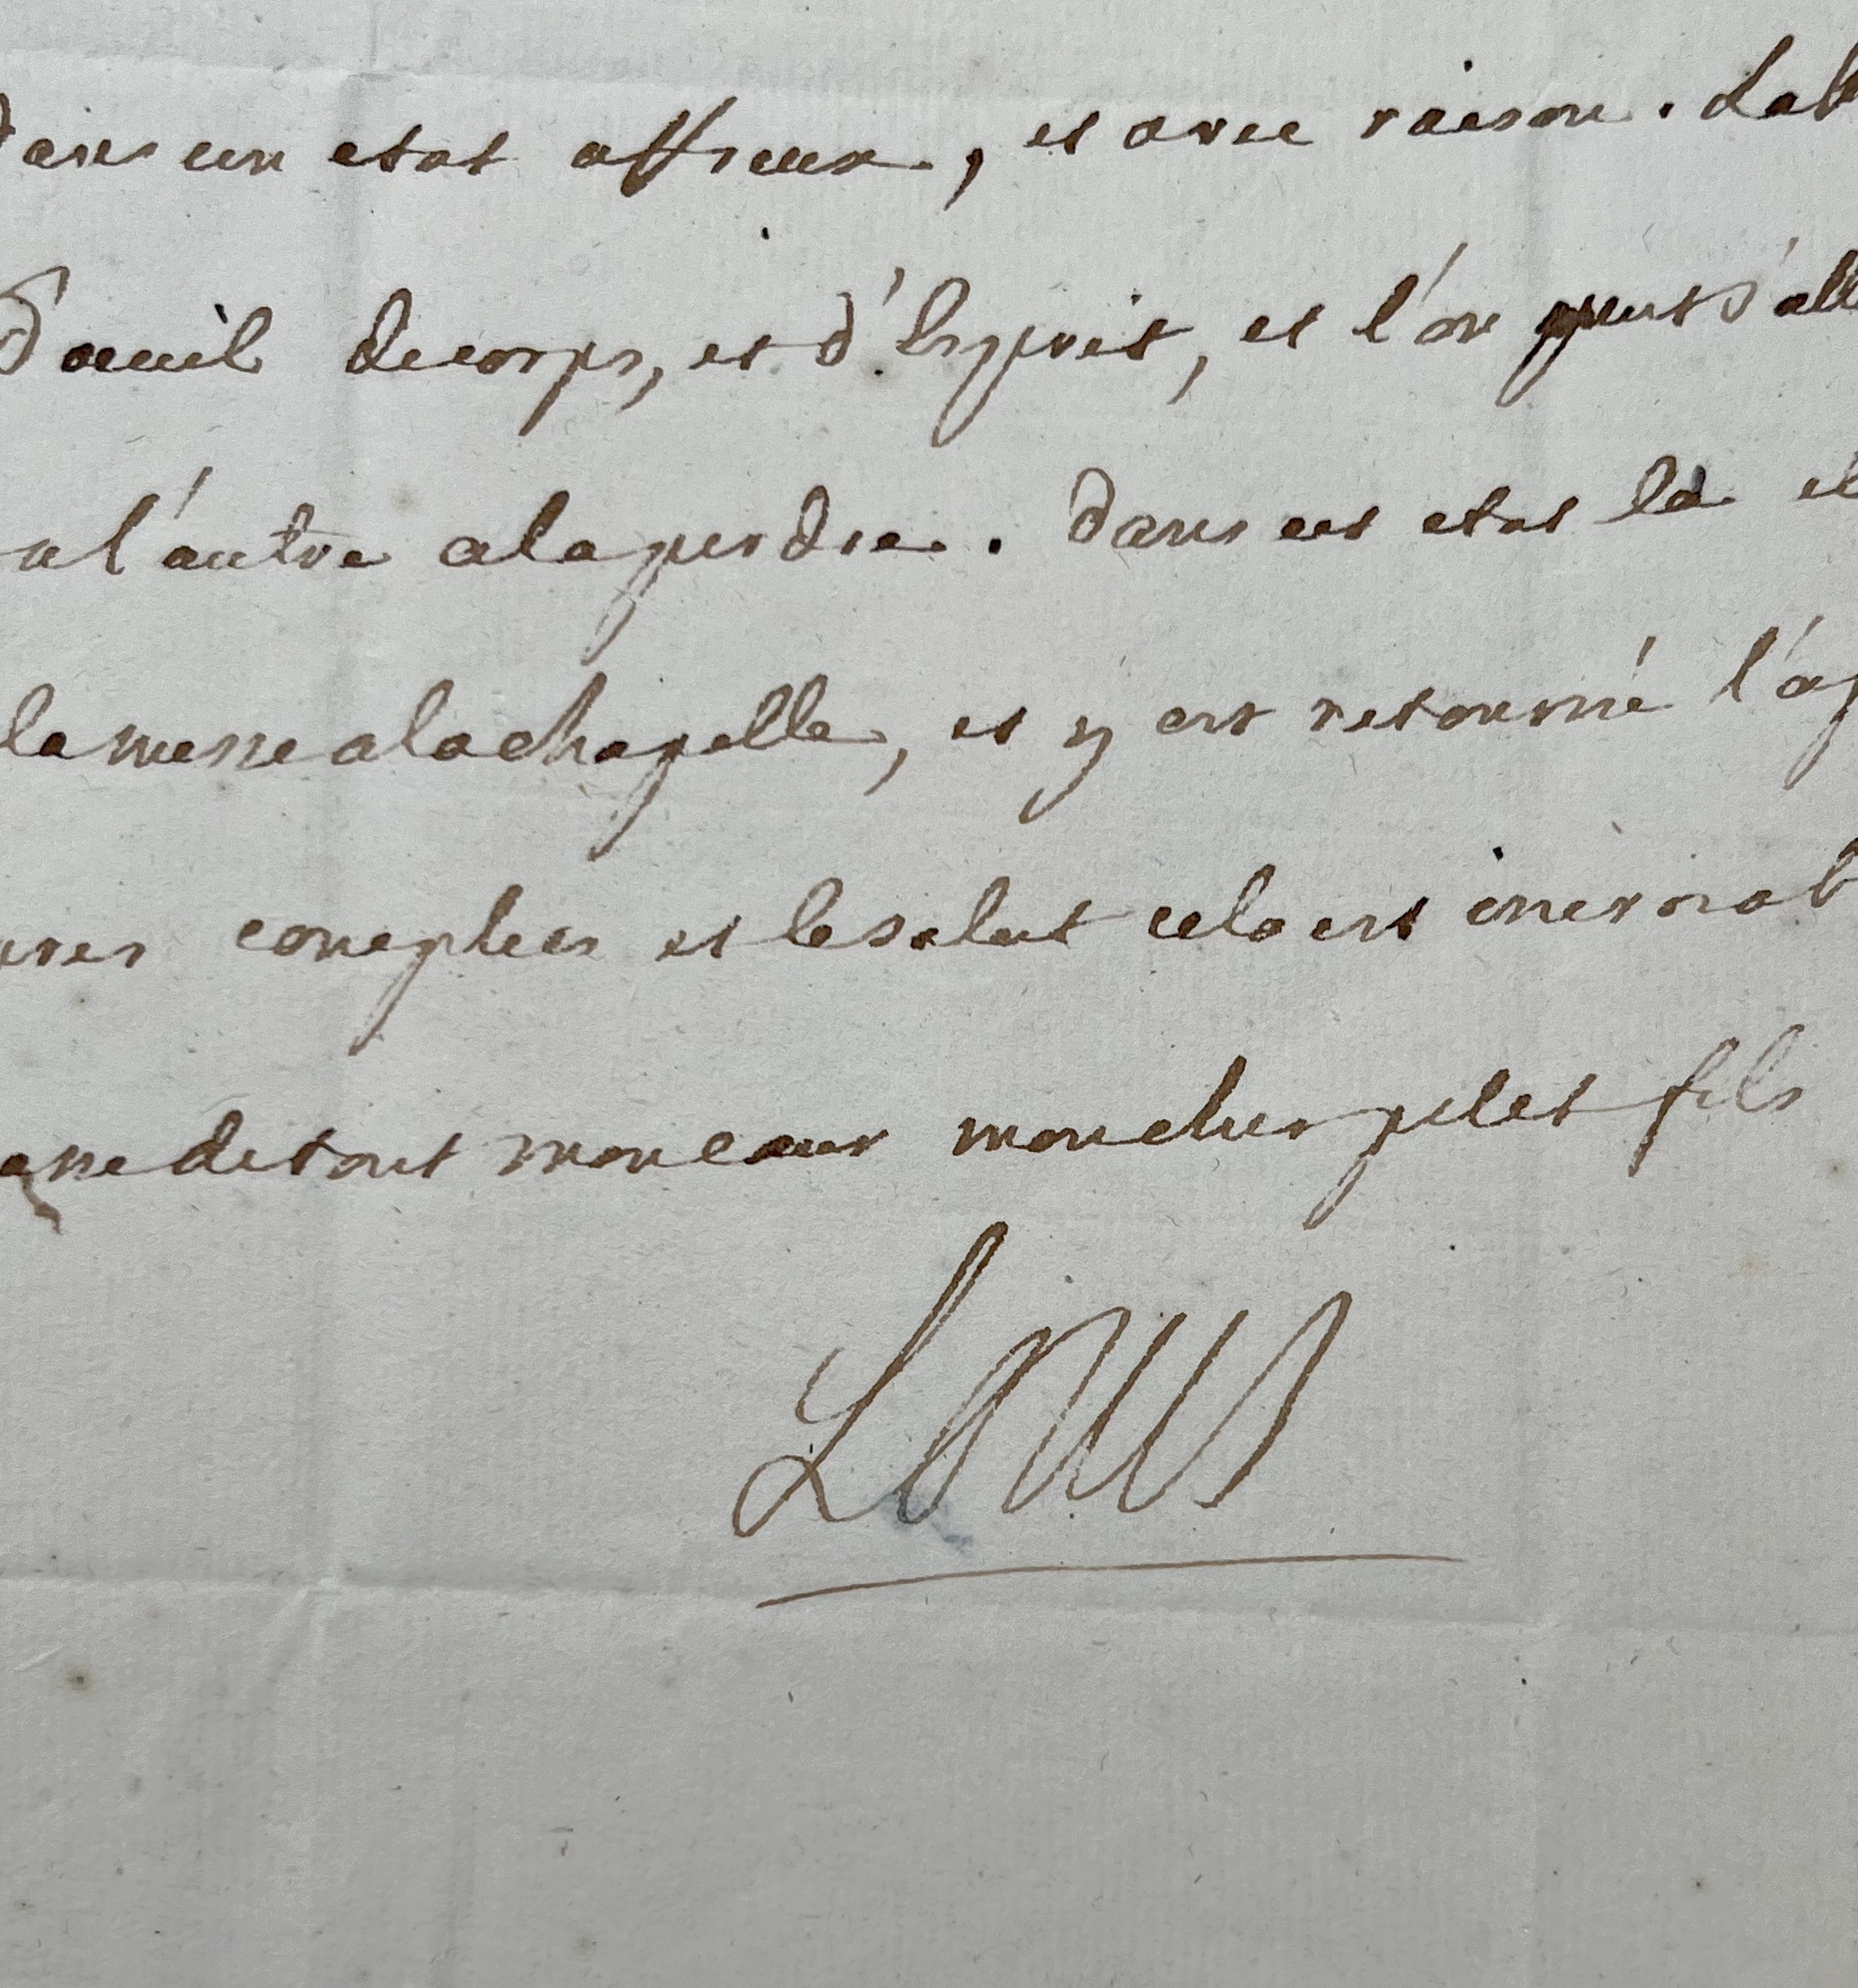 dans un etat affreux, et avec raison. Lab
d'oeuil de corps, et d'esprit, et l'on peut s'all
a l'autre a la perdre. dans cet etat la el
la messe a la chapelle, et y est retourné l'ap
vres complies et le salut cela est incroiab
asse de tout mon coeur mon cher petit fils
Louis